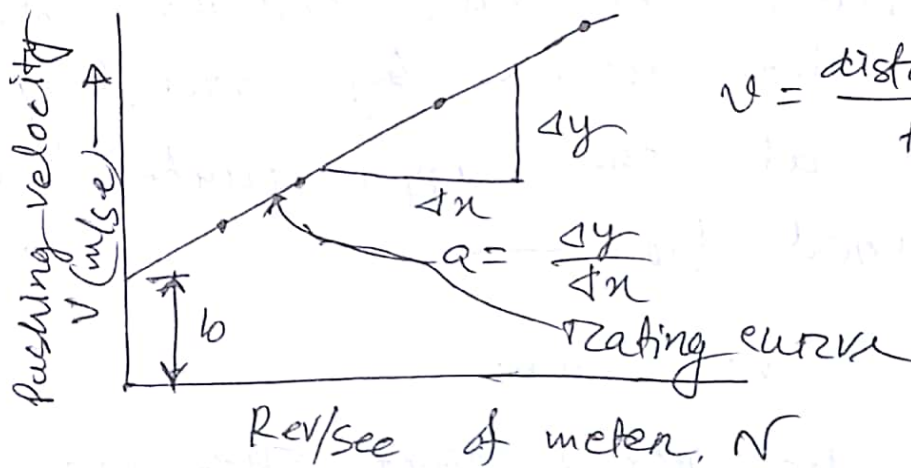 Pushing velocity
V (m/se)
v = dist
Δy
Δx
a = Δy/Δx
b
Rating curve
Rev/see of meter, N